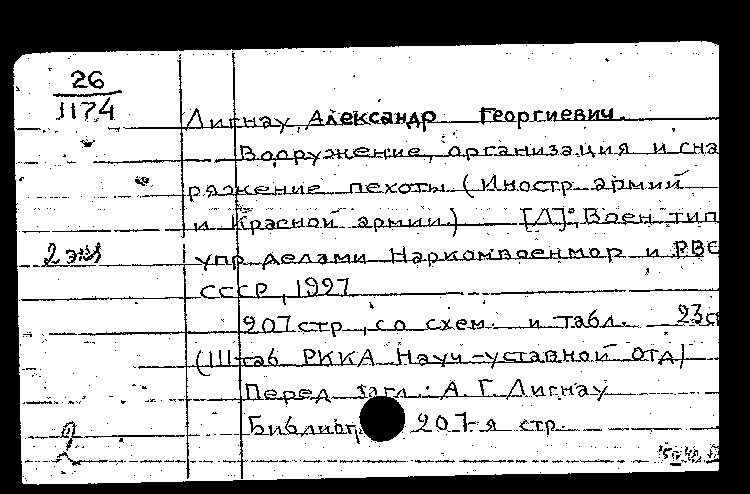 26
1174
Лигнау, Александр Георгиевич.
Вооружение, организация и сна
ряжение пехоты (Иностр армий
и Красной армии) [Л]: Воен тип
2 экз
упр делами Наркомвоенмор и РВС
СССР, 1927
207 стр, со схем. и табл. 23 с
(Штаб РККА Науч-уставной отд)
Перед загл: А. Г. Лигнау
Библиогр 207-я стр.
2